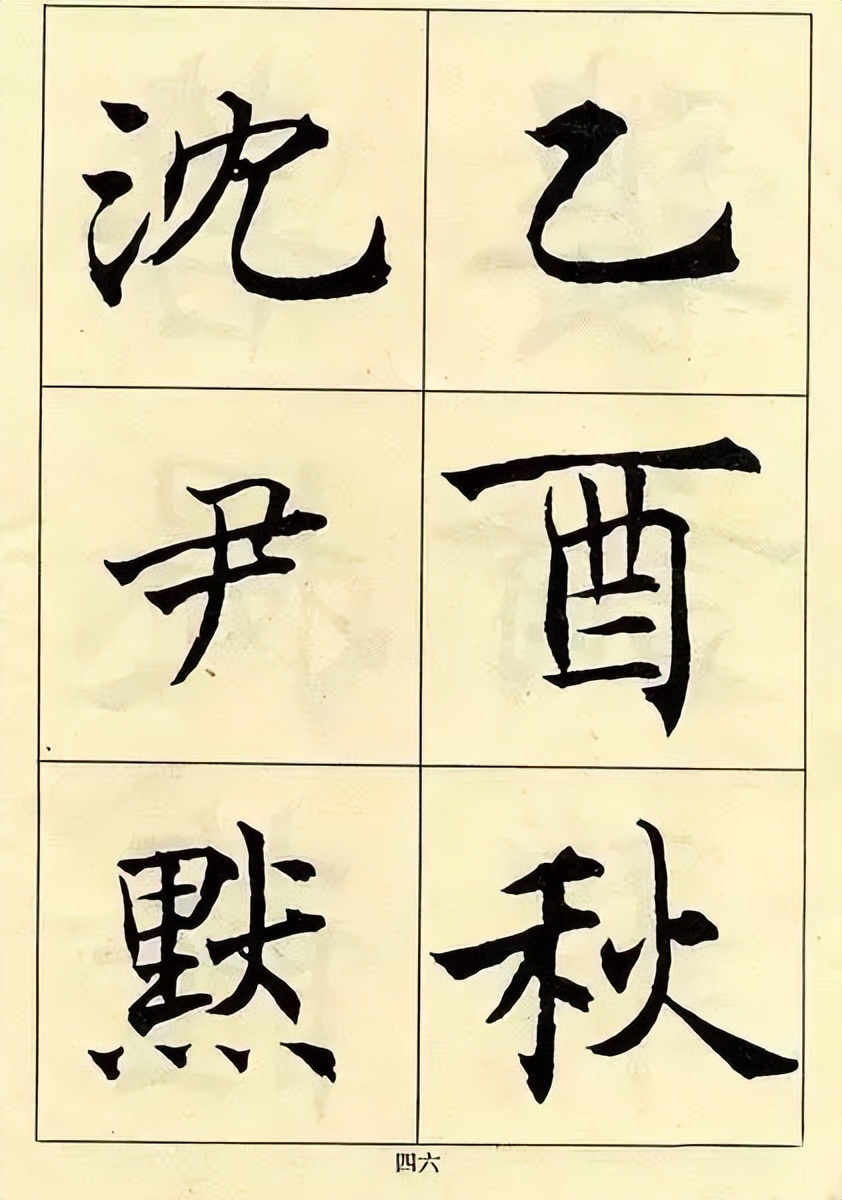 乙酉秋
沈尹默
四六